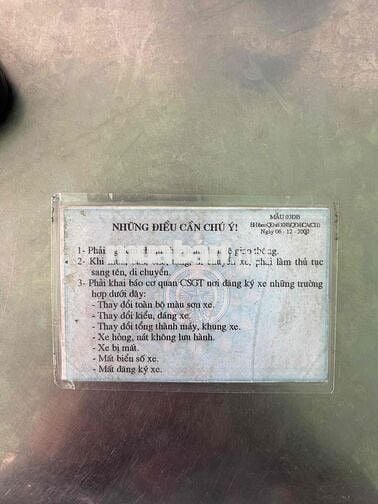 MẪU 03ĐB
Ngày 06 - 12 - 2000
NHỮNG ĐIỀU CẦN CHÚ Ý!
1- Phải giao thông.
2- Khi xe, phải làm thủ tục
sang tên, di chuyển.
3- Phải khai báo cơ quan CSGT nơi đăng ký xe những trường
hợp dưới đây:
- Thay đổi toàn bộ màu sơn xe.
- Thay đổi kiểu, dáng xe.
- Thay đổi tổng thành máy, khung xe.
- Xe hỏng, nát không lưu hành.
- Xe bị mất.
- Mất biển số xe.
- Mất đăng ký xe.